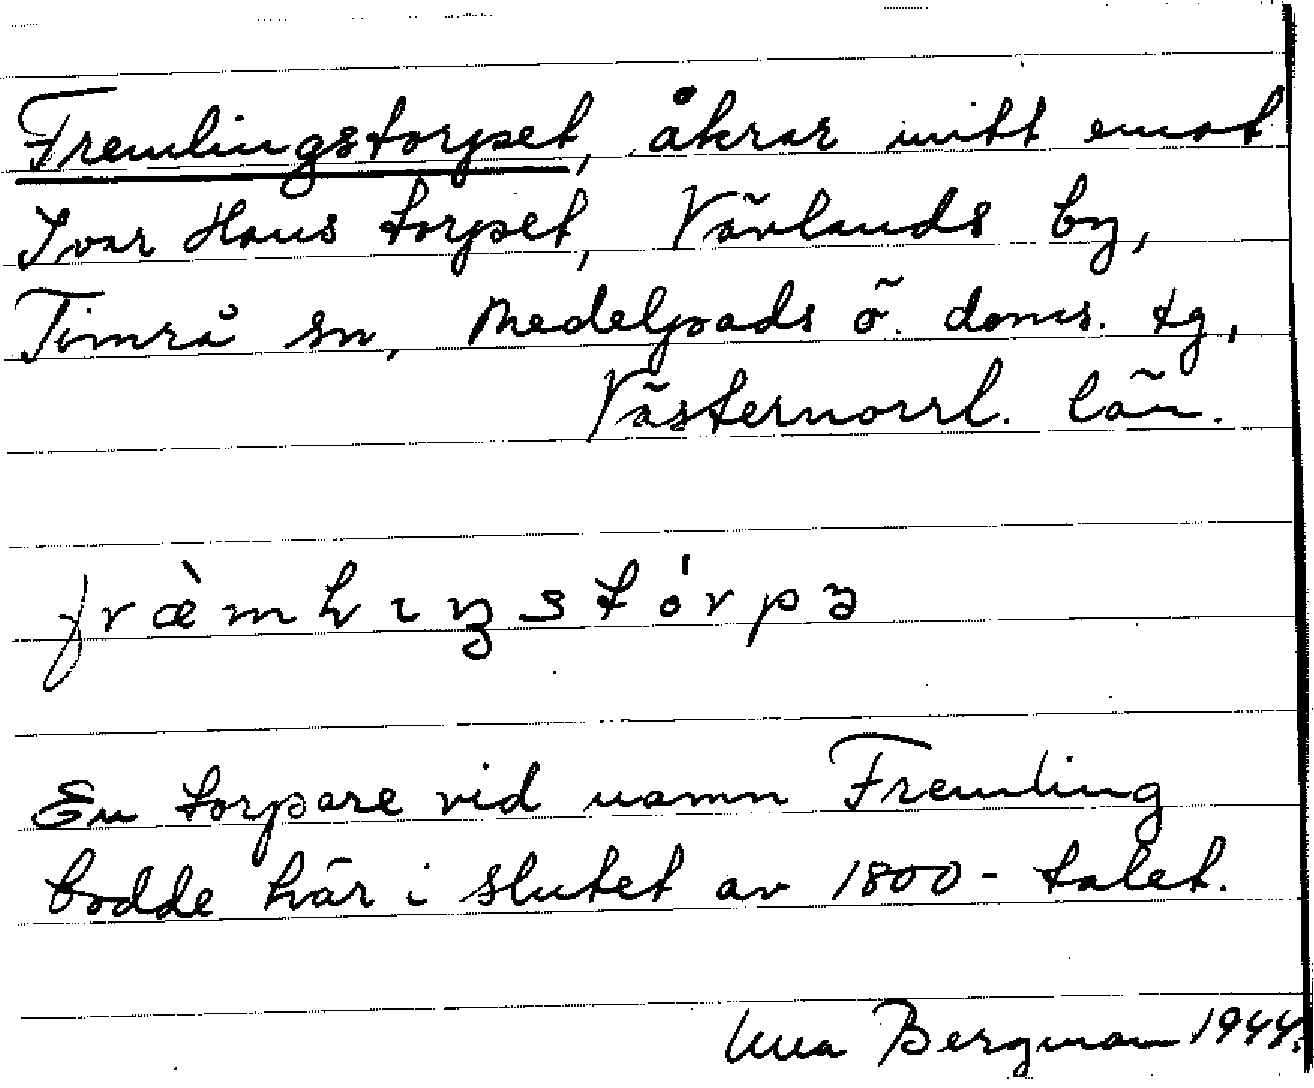 Fremlingstorpet, åkrar mitt emot
Ivar Hans torpet, Vävlands by,
Timrå sn, Medelpads ö. doms. tg,
Västernorrl. län.
fræ̀mlıŋstórpə
En torpare vid namn Fremling
bodde här i slutet av 1800-talet.
Bergman 1944.